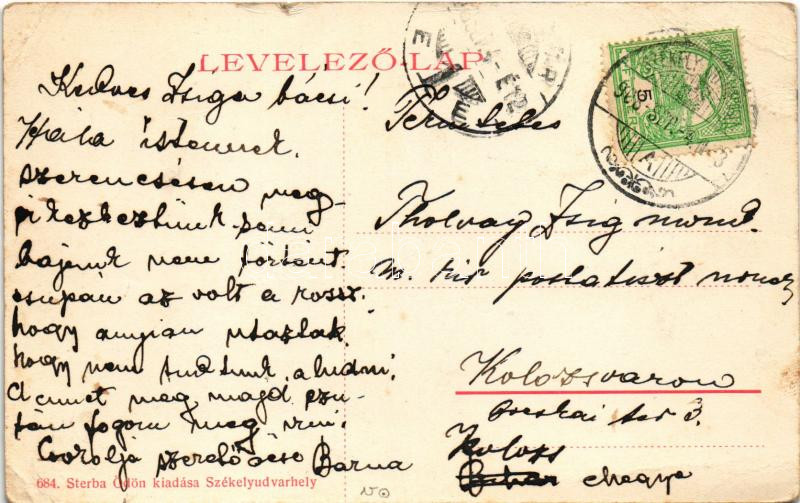 LEVELEZŐ-LAP
Kedves Zsiga bácsi!
Hála istennek
szerencsésen meg-
érkeztünk semmi
bajunk nem történt.
csupán az volt a rossz.
hogy annyian utaztak.
hogy nem tudtunk aludni.
címet meg majd ezu-
tán fogom meg írni.
Csorolja szerető öcse Barna
684. Sterba Ödön kiadása Székelyudvarhely
Tholvay Zsigmond.
m. kir postatiszt
Kolozsvaron
tér 3.
Kolozs
megye